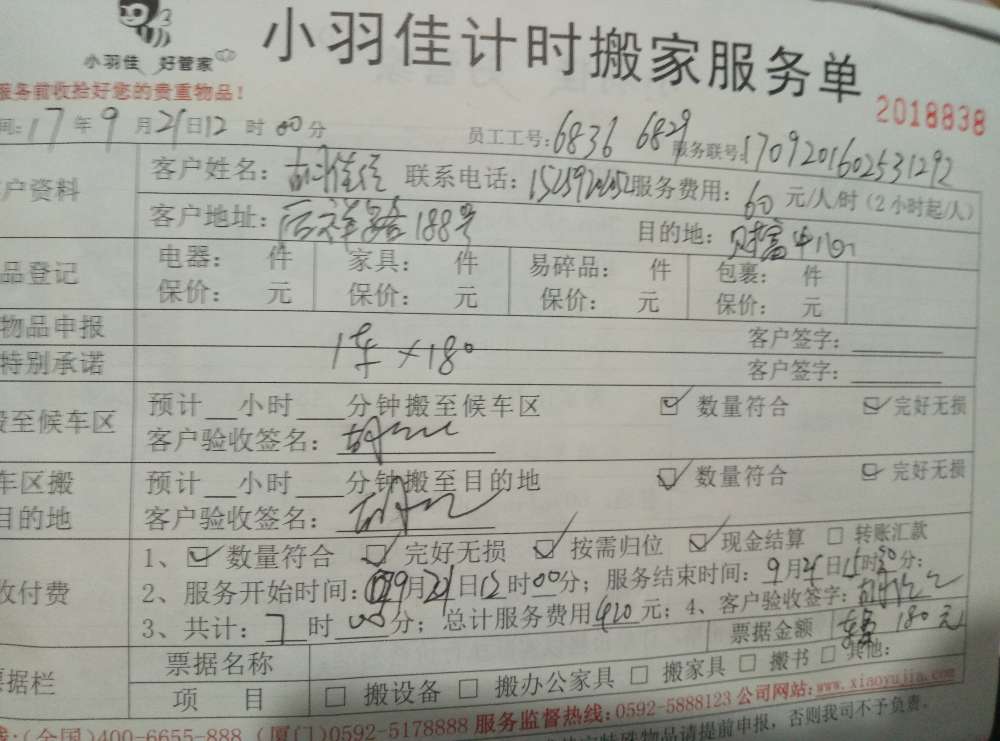 小羽佳 好管家
小羽佳计时搬家服务单
服务前收拾好您的贵重物品！
2018838
间：17年9月21日12时00分 员工工号：6836 6829 服务联号：1709201602531292
户资料 客户姓名： 联系电话： 服务费用：60元/人/时（2小时起/人）
客户地址：后祥路188号 目的地：财富中心
品登记 电器： 件 家具： 件 易碎品： 件 包裹： 件
保价： 元 保价： 元 保价： 元 保价： 元
物品申报 客户签字：
1车×180
特别承诺 客户签字：
搬至候车区 预计__小时___分钟搬至候车区 ☑数量符合 ☑完好无损
客户验收签名：
车区搬 预计__小时___分钟搬至目的地 ☑数量符合 ☑完好无损
目的地 客户验收签名：
收付费 1、☑数量符合 ☑完好无损 ☑按需归位 ☑现金结算 □转账汇款
2、服务开始时间：9月21日12时00分；服务结束时间：9月21日15时30分；
3、共计：7时00分；总计服务费用420元；4、客户验收签字：
票据金额 180元
票据栏 票据名称
项 目 □搬设备 □搬办公家具 □搬家具 □搬书 □其他：
线：(全国)400-6655-888 (厦门)0592-5178888 服务监督热线：0592-5888123 公司网站：www.xiaoyujia.com
特殊物品请提前申报，否则我司不予负责。